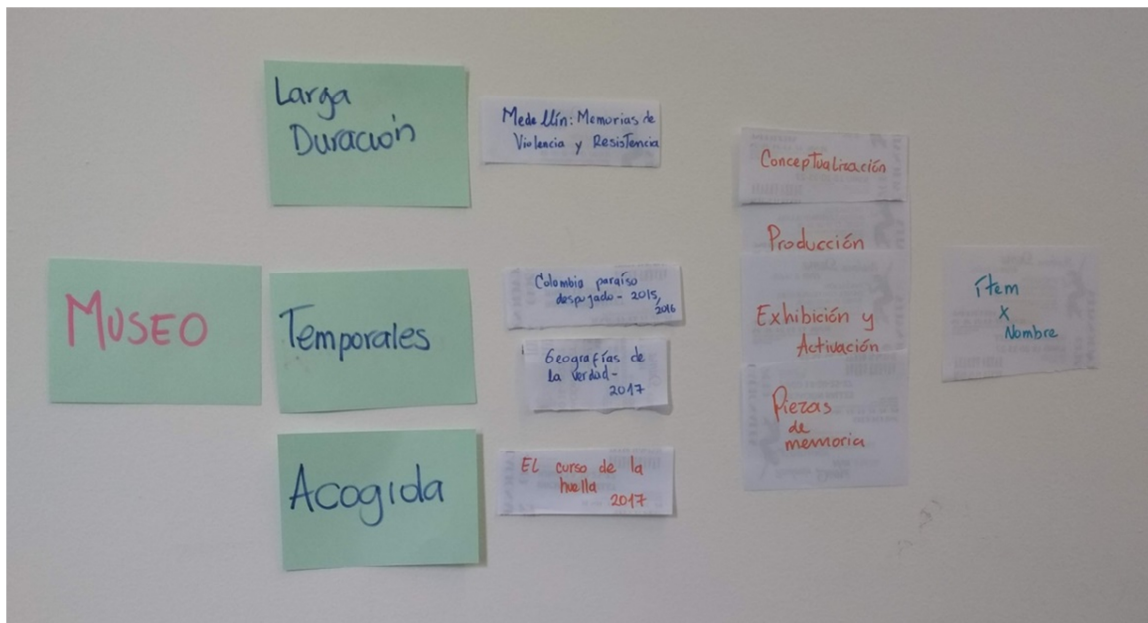 MUSEO
Larga
Duración
Temporales
Acogida
Medellín: Memorias de
Violencia y Resistencia
Colombia paraíso
despojado - 2015,
2016
Geografías de
la verdad -
2017
EL curso de la
huella
2017
Conceptualización
Producción
Exhibición y
Activación
Piezas
de
memoria
ítem
x
Nombre